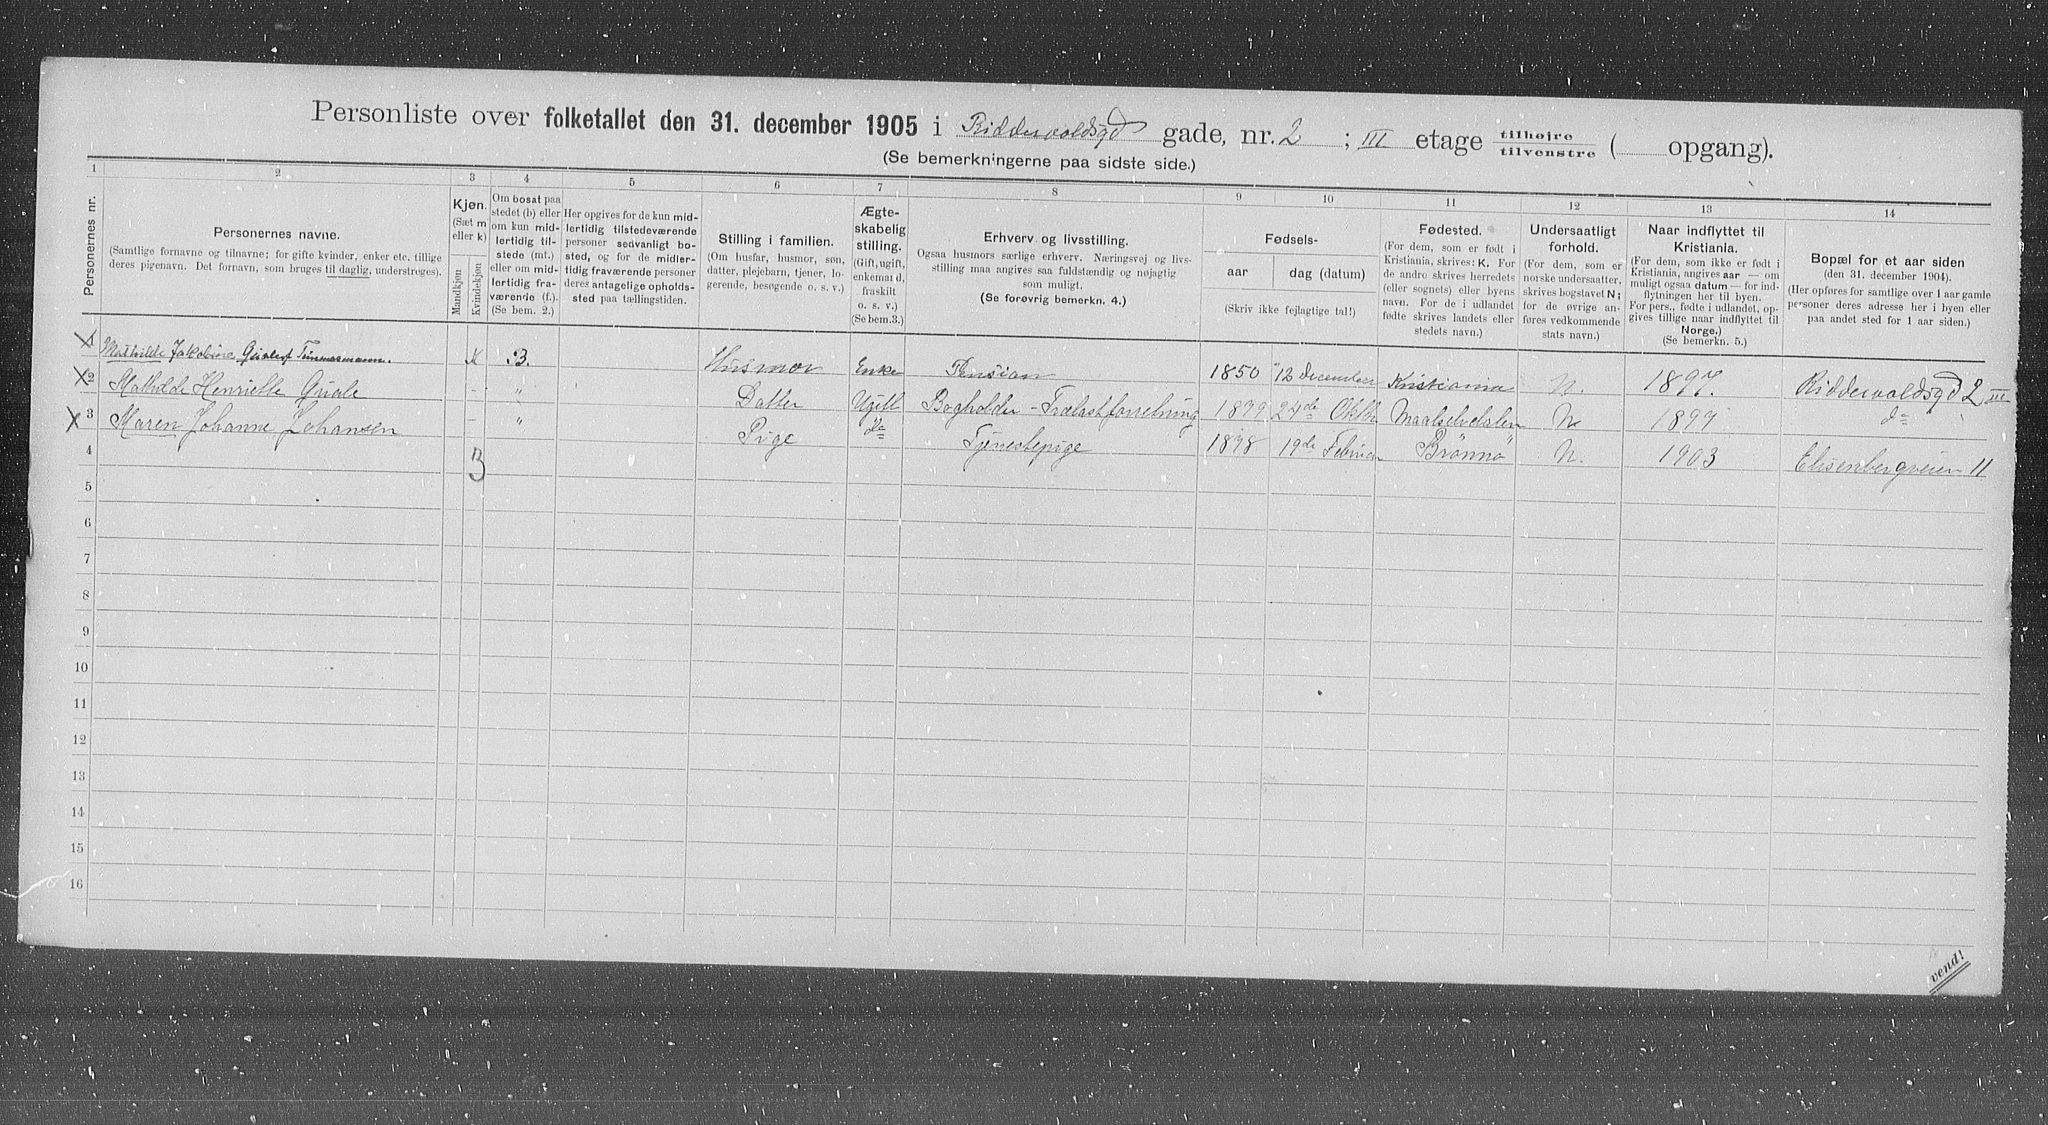 Personliste over folketallet den 31. december 1905 i Riddervoldsgd gade, nr. 2 ; III etage tilhøjre tilvenstre ( opgang).
(Se bemerkningerne paa sidste side.)
1 2 3 4 5 6 7 8 9 10 11 12 13 14
Personernes nr.
Personernes navne.
(Samtlige fornavne og tilnavne; for gifte kvinder, enker etc. tillige
deres pigenavn. Det fornavn, som bruges til daglig, understreges).
Kjøn.
(Sæt m
eller k)
Mandkjøn
Kvindekjøn
Om bosat paa
stedet (b) eller
om kun mid-
lertidig til-
stede (mt.)
eller om mid-
lertidig fra-
værende (f.).
(Se bem. 2.)
Her opgives for de kun mid-
lertidig tilstedeværende
personer sedvanligt bo-
sted, og for de midler-
tidig fraværende personer
deres antagelige opholds-
sted paa tællingstiden.
Stilling i familien.
(Om husfar, husmor, søn,
datter, plejebarn, tjener, lo-
gerende, besøgende o. s. v.)
Ægte-
skabelig
stilling.
(Gift, ugift,
enkemand,
fraskilt
o. s. v.)
(Se bem.3.)
Erhverv og livsstilling.
Ogsaa husmors særlige erhverv. Næringsvej og livs-
stilling maa angives saa fuldstændig og nøjagtig
som muligt.
(Se forøvrig bemerkn. 4.)
Fødsels-
aar dag (datum)
(Skriv ikke fejlagtige tal!)
Fødested.
(For dem, som er født i
Kristiania, skrives: K. For
de andre skrives herredets
(eller sognets) eller byens
navn. For de i udlandet
fødte skrives landets eller
stedets navn.)
Undersaatligt
forhold.
(For dem, som er
norske undersaatter,
skrives bogstavet N;
for de øvrige an-
føres vedkommende
stats navn.)
Naar indflyttet til
Kristiania.
(For dem, som ikke er født i
Kristiania, angives aar — om
muligt ogsaa datum — for ind-
flytningen her til byen.
For pers., fødte i udlandet, op-
gives tillige naar indflyttet til
Norge.)
(Se bemerkn. 5.)
Bopæl for et aar siden
(den 31. december 1904).
(Her opføres for samtlige over 1 aar gamle
personer deres adresse her i byen eller
paa andet sted for 1 aar siden.)
1 Mathilde Jakobine Qvale f Timmermann. K B. Husmor Enke Pension 1850 12 december Kristiania N. 1897. Riddervoldsgd 2 III
2 Mathilde Henriette Qvale - " Datter Ugift Bogholder - Trælastforretning 1879 24de Oktb Maalselvdalen N. 1897 do
3 Maren Johanne Johansen - " Pige do Tjenestepige 1878 19de Februar Brønnø N. 1903 Elisenbergveien 11
4 3
5
6
7
8
9
10
11
12
13
14
15
16
vend!